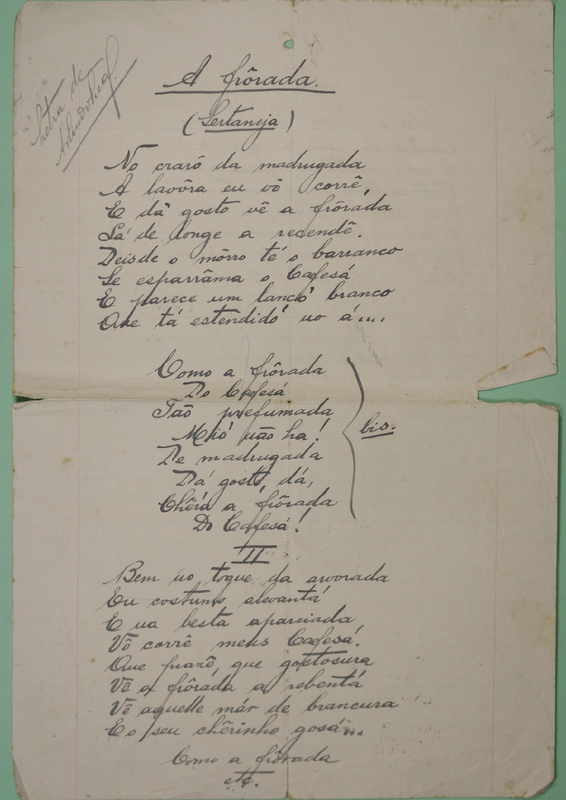 Letra de
Arlindo Leal.
A frôrada.
(Sertaneja)
No crarô da madrugada
A lavôra eu vô corrê,
E dá gosto vê a frôrada
Lá de longe a recendê.
Deisde o môrro té o barranco
Se esparrâma o Cafesá
E parece um lançó branco
Que tá estendidó no á....
Como a frôrada
Do Cafesá
Tão prefumada
Mió não ha!
De madrugada
Dá gosto, dá,
Cherá a frôrada
Do Cafesá!
bis.
II
Bem no toque da arvorada
Eu costumo alevantá
E na besta apareiada
Vô corrê meus Cafesá.
Que prazê, que gostosura
Vê a frôrada a rebentá
Vê aquelle már de brancura
E o seu chêrinho gosá...
Como a frôrada
etc.